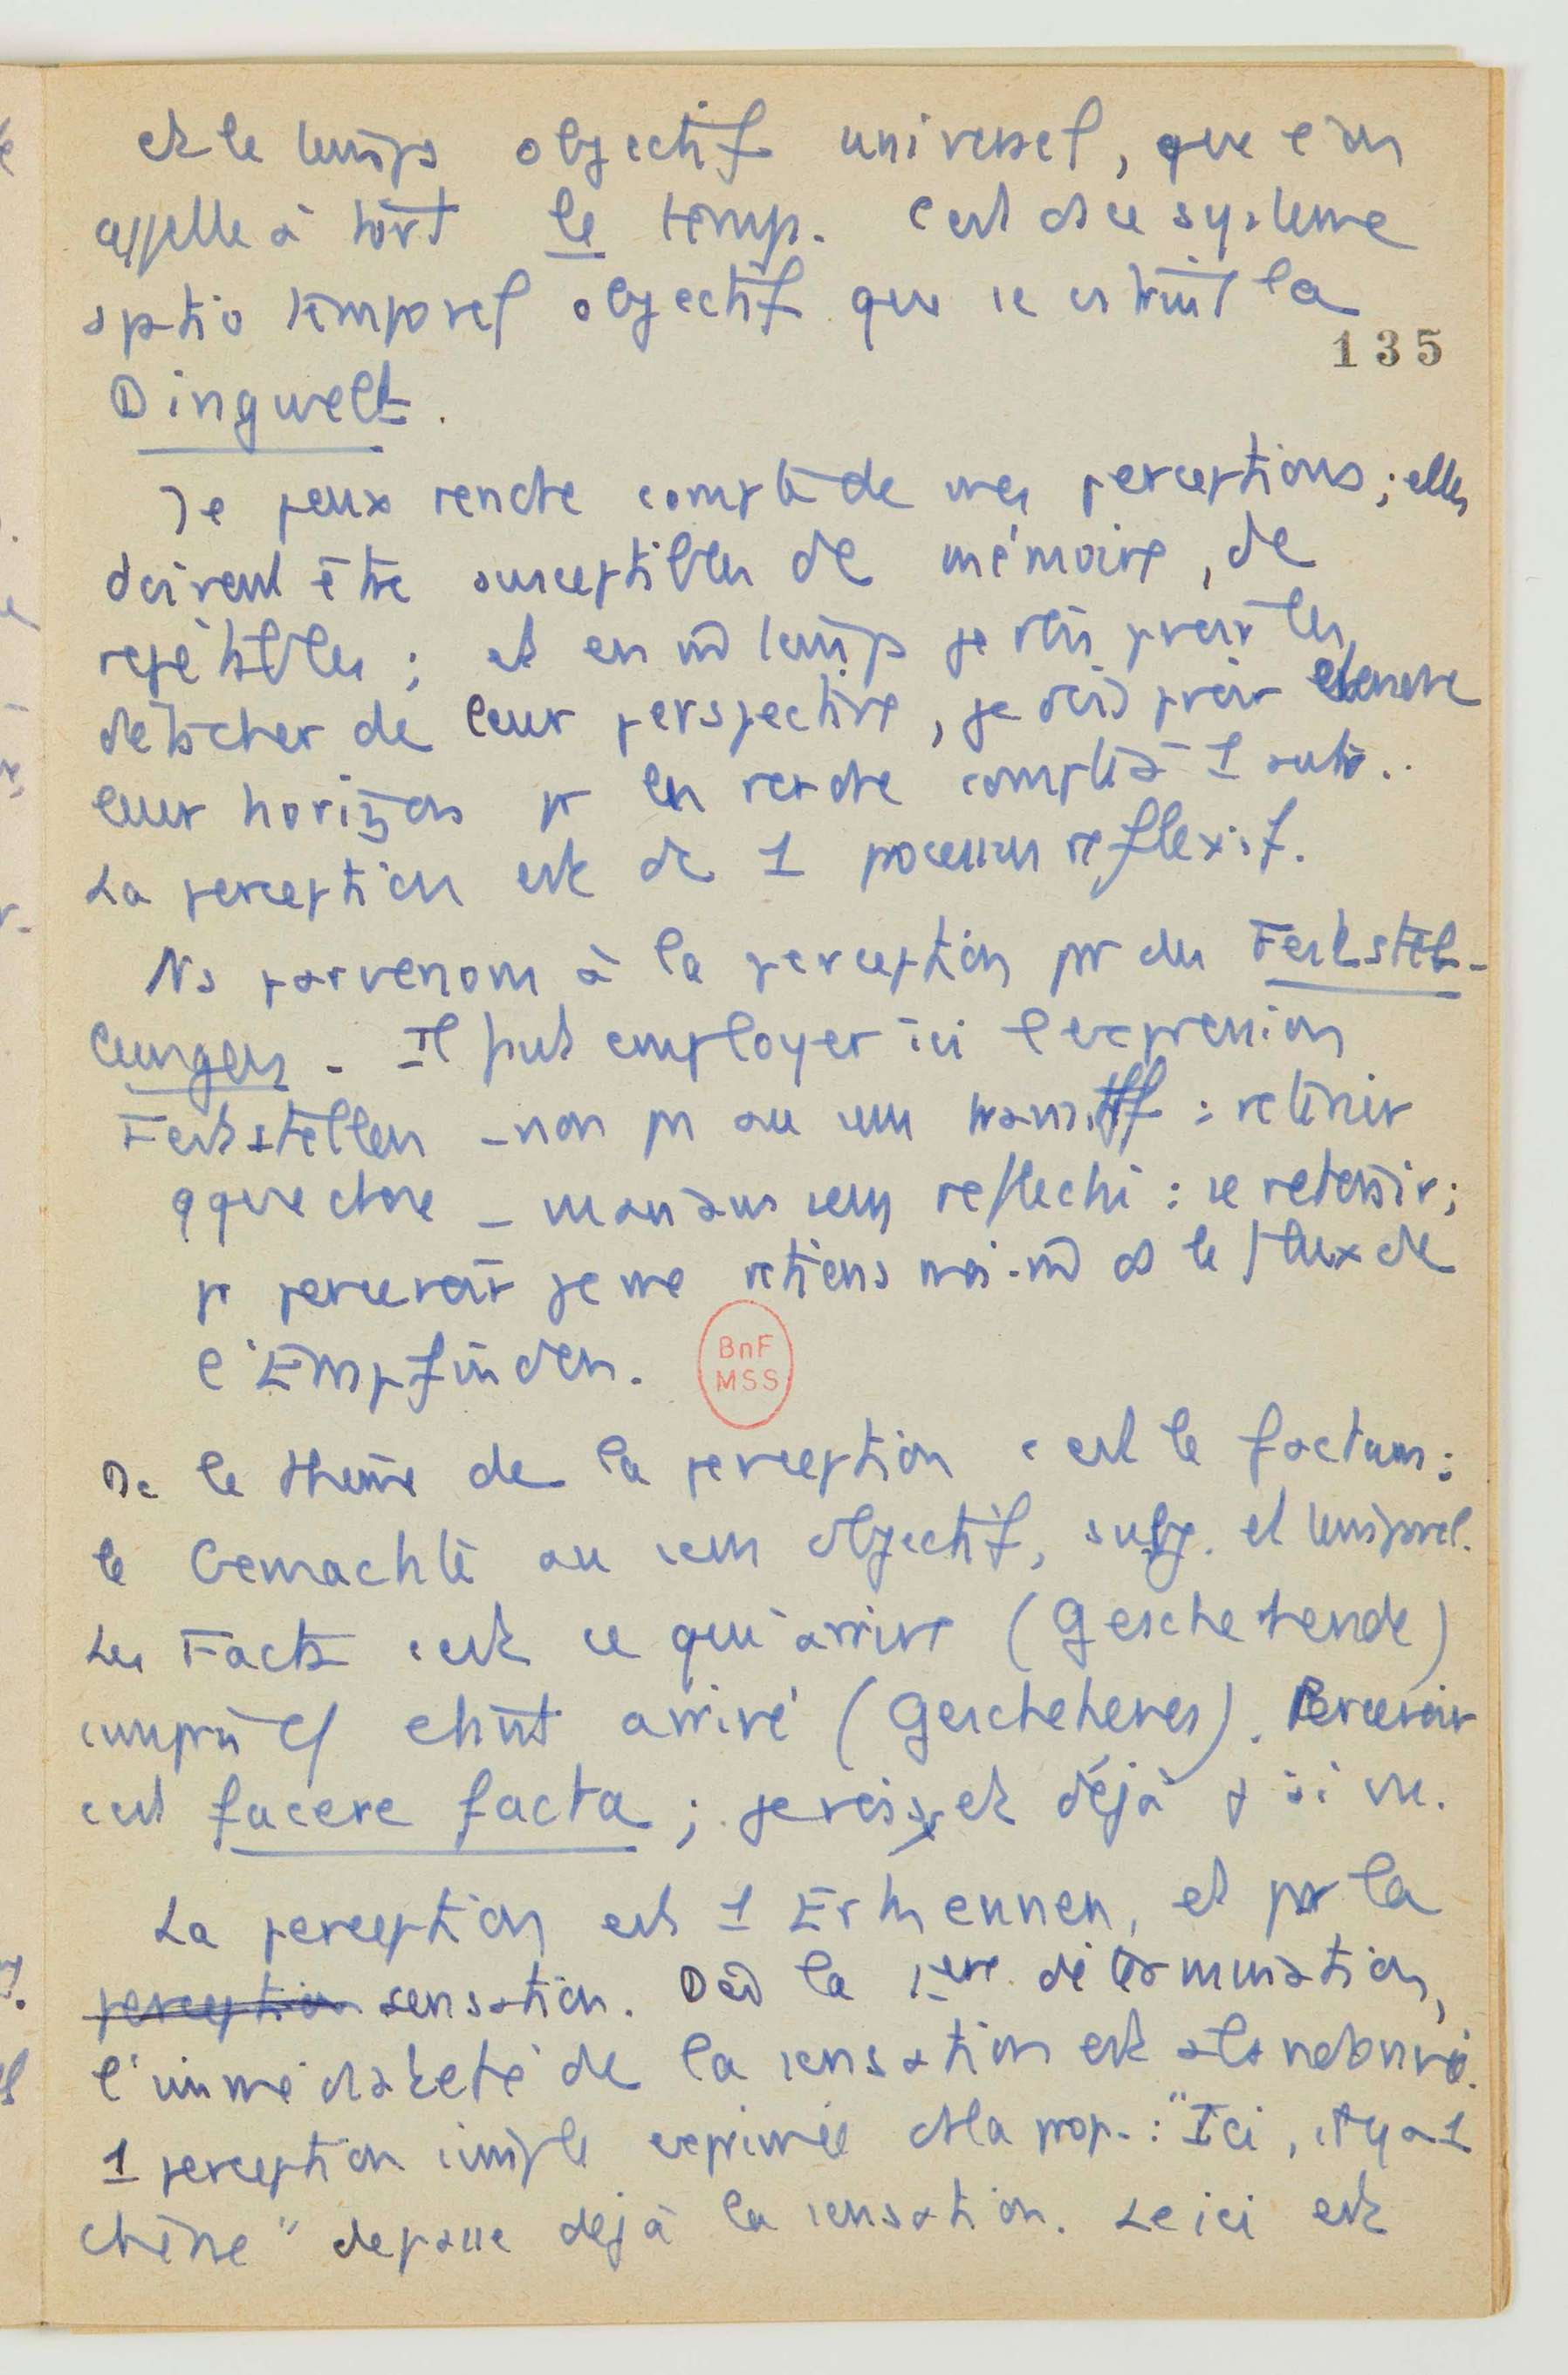 et le temps objectif universel, que l'on
appelle à tort le temps. C'est ds ce système
sptio temporel objectif que se cstruit la
135
Dingwelt.
Je peux rendre compte de mes perceptions ; elles
doivent être susceptibles de mémoire, de
répétibles ; et en m̄ temps je dois pouvoir les
détacher de leur perspective, je dois pvoir
leur horizon pr les rendre comptes à 1 autre..
La perception est dc 1 processus réflexif.
Ns parvenons à la perception pr des Feststel-
lungen. Il faut employer ici l'expression
Feststellen – non ps au sens transitif : retenir
qque chose – mais au sens réfléchi : se retenir ;
pr percevoir je me retiens moi-m̄ ds le flux de
l'Empfinden.
BnF
MSS
Dc le thème de la perception c'est le factum :
le Gemachte au sens objectif, subj. et temporel.
Les Facta c'est ce qui arrive (Geschehende)
compris cō étant arrivé (Geschehenes). Percevoir
c'est facere facta ; je vois, et déjà j'ai vu.
La perception est 1 Erkennen, et pas la
perception sensation. Dès la 1ère détermination,
l'immédiateté de la sensation est abandonnée.
1 perception simple exprimée ds la prop. : "Ici, il y a 1
chêne" dépasse déjà la sensation. Le ici est